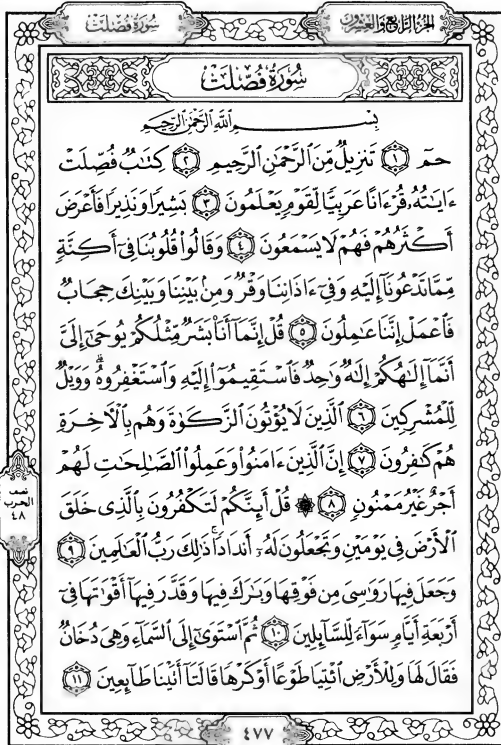 سُورَةُ فُصِّلَتْ
الجُزْءُ الرَّابِعُ وَالعِشْرُونَ
سُورَةُ فُصِّلَتْ
بِسْمِ اللَّهِ الرَّحْمَٰنِ الرَّحِيمِ
حمٓ ١ تَنزِيلٌ مِّنَ الرَّحْمَٰنِ الرَّحِيمِ ٢ كِتَٰبٌ فُصِّلَتْ
ءَايَٰتُهُۥ قُرْءَانًا عَرَبِيًّا لِّقَوْمٍ يَعْلَمُونَ ٣ بَشِيرًا وَنَذِيرًا فَأَعْرَضَ
أَكْثَرُهُمْ فَهُمْ لَا يَسْمَعُونَ ٤ وَقَالُوا۟ قُلُوبُنَا فِىٓ أَكِنَّةٍ
مِّمَّا تَدْعُونَآ إِلَيْهِ وَفِىٓ ءَاذَانِنَا وَقْرٌ وَمِنۢ بَيْنِنَا وَبَيْنِكَ حِجَابٌ
فَٱعْمَلْ إِنَّنَا عَٰمِلُونَ ٥ قُلْ إِنَّمَآ أَنَا۠ بَشَرٌ مِّثْلُكُمْ يُوحَىٰٓ إِلَىَّ
أَنَّمَآ إِلَٰهُكُمْ إِلَٰهٌ وَٰحِدٌ فَٱسْتَقِيمُوٓا۟ إِلَيْهِ وَٱسْتَغْفِرُوهُ ۗ وَوَيْلٌ
لِّلْمُشْرِكِينَ ٦ ٱلَّذِينَ لَا يُؤْتُونَ ٱلزَّكَوٰةَ وَهُم بِٱلْءَاخِرَةِ
هُمْ كَٰفِرُونَ ٧ إِنَّ ٱلَّذِينَ ءَامَنُوا۟ وَعَمِلُوا۟ ٱلصَّٰلِحَٰتِ لَهُمْ
أَجْرٌ غَيْرُ مَمْنُونٍ ٨ ۞ قُلْ أَئِنَّكُمْ لَتَكْفُرُونَ بِٱلَّذِى خَلَقَ
ٱلْأَرْضَ فِى يَوْمَيْنِ وَتَجْعَلُونَ لَهُۥٓ أَندَادًا ۚ ذَٰلِكَ رَبُّ ٱلْعَٰلَمِينَ ٩
وَجَعَلَ فِيهَا رَوَٰسِىَ مِن فَوْقِهَا وَبَٰرَكَ فِيهَا وَقَدَّرَ فِيهَآ أَقْوَٰتَهَا فِىٓ
أَرْبَعَةِ أَيَّامٍ سَوَآءً لِّلسَّآئِلِينَ ١٠ ثُمَّ ٱسْتَوَىٰٓ إِلَى ٱلسَّمَآءِ وَهِىَ دُخَانٌ
فَقَالَ لَهَا وَلِلْأَرْضِ ٱئْتِيَا طَوْعًا أَوْ كَرْهًا قَالَتَآ أَتَيْنَا طَآئِعِينَ ١١
نصف
الحزب
٤٨
٤٧٧